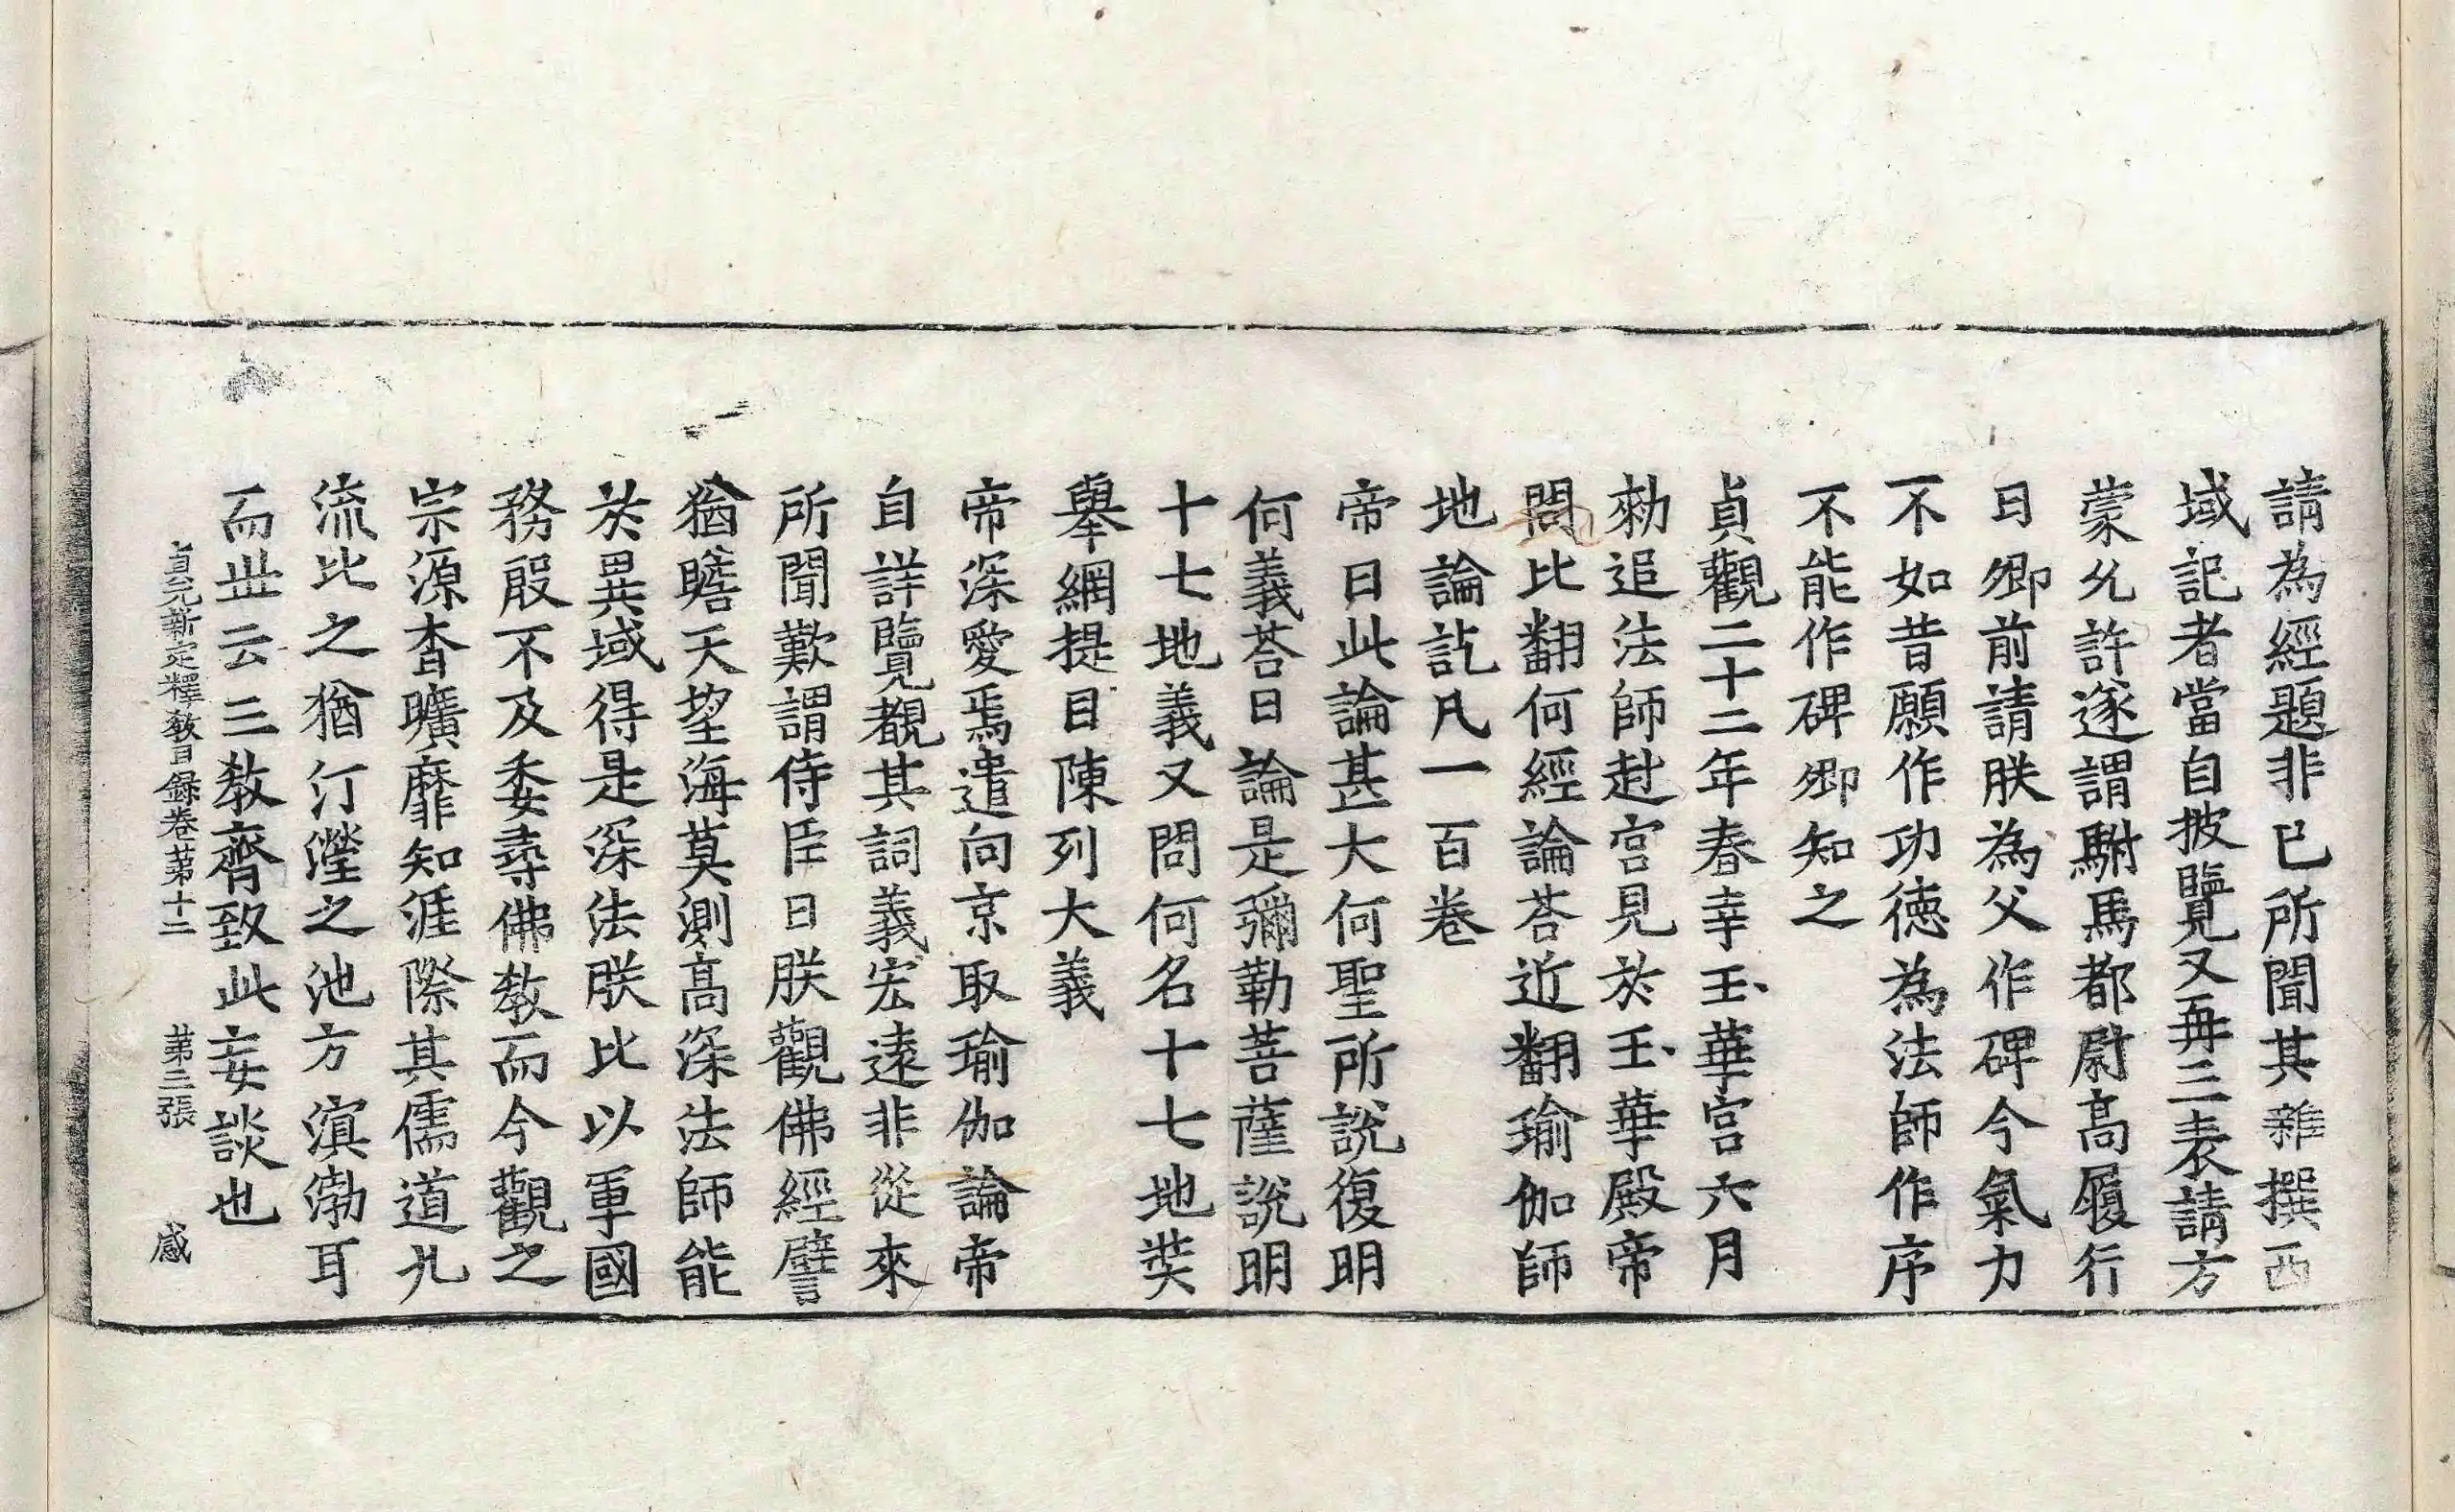 請為經題非已所聞其雜撰西
域記者當自披覽又再三表請方
蒙允許遂謂駙馬都尉高履行
曰卿前請朕為父作碑今氣力
不如昔願作功德為法師作序
不能作碑卿知之
貞觀二十二年春幸玉華宮六月
勑追法師赴宮見於玉華殿帝
問比翻何經論荅近翻瑜伽師
地論訖凡一百卷
帝曰此論甚大何聖所說復明
何義荅曰論是彌勒菩薩說明
十七地義又問何名十七地奘
舉網提目陳列大義
帝深愛焉遣向京取瑜伽論帝
自詳覽覩其詞義宏遠非從來
所聞歎謂侍臣曰朕觀佛經譬
猶瞻天望海莫測高深法師能
於異域得是深法朕比以軍國
務殷不及委尋佛教而今觀之
宗源杳曠靡知涯際其儒道九
流比之猶汀瀅之池方溟渤耳
而世云三教齊致此妄談也
貞元新定釋教目錄卷第十二 第三張 感